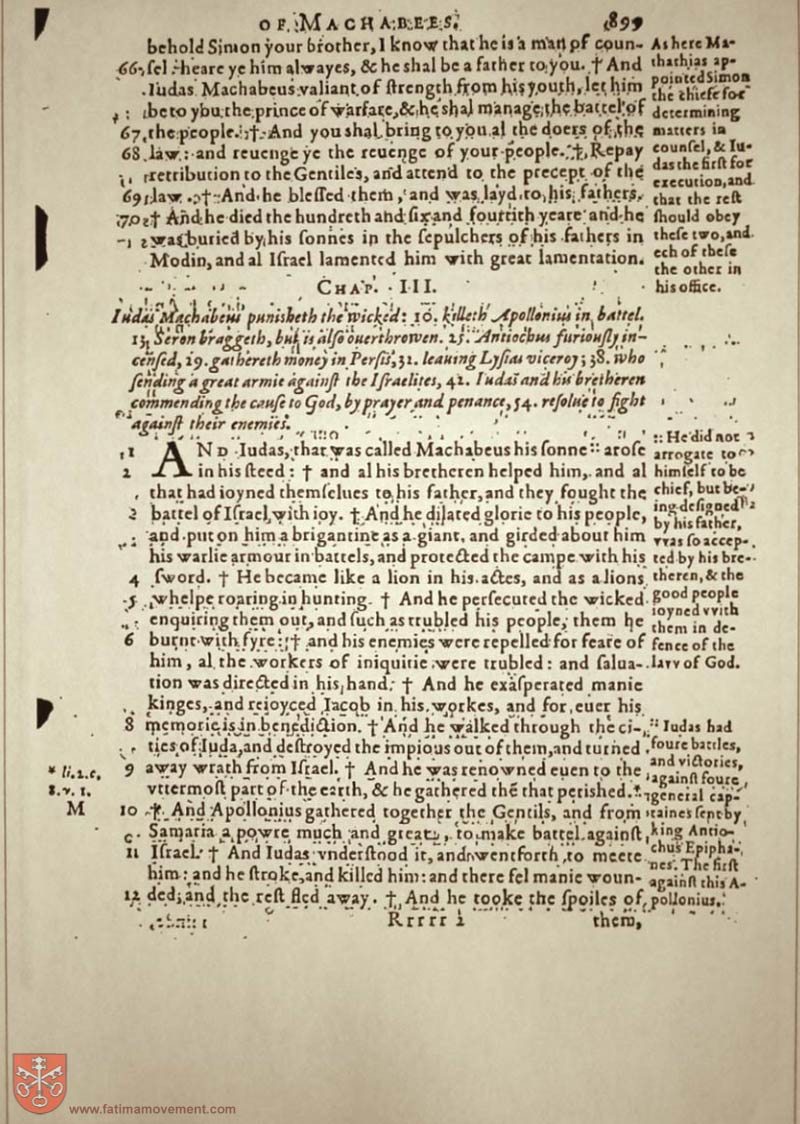 OF MACHABEES. 899
behold Simon your brother, I know that he is a man of coun-
66 sel: heare ye him alwayes, & he shal be a father to you. † And
Iudas Machabeus valiant of strength from his youth, let him
be to you the prince of warfare, & he shal manage the battel of
67 the people. † And you shal bring to you al the doers of the
68 law: and reuenge ye the reuenge of your people. † Repay
retribution to the Gentiles, and attend to the precept of the
69 law. † And he blessed them, and was layd to his fathers.
70 † And he died the hundreth and six and fourtith yeare: and he
was buried by his sonnes in the sepulchers of his fathers in
Modin, and al Israel lamented him with great lamentation.
As here Ma-
thathias ap-
pointed Simon
the chiefe for
determining
matters in
counsel, & Iu-
das the first for
execution, and
that the rest
should obey
these two, and
ech of these
the other in
his office.
CHAP. III.
Iudas Machabeus punisheth the wicked: 10. killeth Apollonius in battel.
13. Seron braggeth, but is also ouerthrowen. 25. Antiochus furiously in-
censed, 29. gathereth money in Persis, 32. leauing Lysias viceroy; 38. who
sending a great armie against the Israelites, 42. Iudas and his bretheren
commending the cause to God, by prayer and penance, 54. resolue to fight
against their enemies.
1 AND Iudas, that was called Machabeus his sonne :: arose
2 in his steed: † and al his bretheren helped him, and al
that had ioyned themselues to his father, and they fought the
battel of Israel with ioy. † And he dilated glorie to his people,
and put on him a brigantine as a giant, and girded about him
his warlie armour in battels, and protected the campe with his
4 sword. † He became like a lion in his actes, and as a lions
5 whelpe roaring in hunting. † And he persecuted the wicked
enquiring them out, and such as trubled his people, them he
6 burnt with fyre: † and his enemies were repelled for feare of
him, al the workers of iniquitie were trubled: and salua-
tion was directed in his hand. † And he exasperated manie
kinges, and reioyced Iacob in his workes, and for euer his
8 memorie is in benediction. † And he walked through the ci-
ties of Iuda, and destroyed the impious out of them, and turned
9 away wrath from Israel. † And he was renowned euen to the
vttermost part of the earth, & he gathered thē that perished. ::
10 † And Apollonius gathered together the Gentils, and from
Samaria a powre much and great, to make battel against
11 Israel. † And Iudas vnderstood it, and went forth to meete
him: and he stroke, and killed him: and there fel manie woun-
12 ded, and the rest fled away. † And he tooke the spoiles of
:: He did not
arrogate to
himself to be
chief, but be-
ing designed
by his father,
vvas so accep-
ted by his bre-
theren, & the
good people
ioyned vvith
them in de-
fence of the
lavv of God.
:: Iudas had
foure battles,
and victories,
against foure
general cap-
taines sent by
king Antio-
chus Epipha-
nes. The first
against this A-
pollonius.
* li. 2. c.
8. v. 1.
M
Rrrrr 1 them,
www.fatimamovement.com